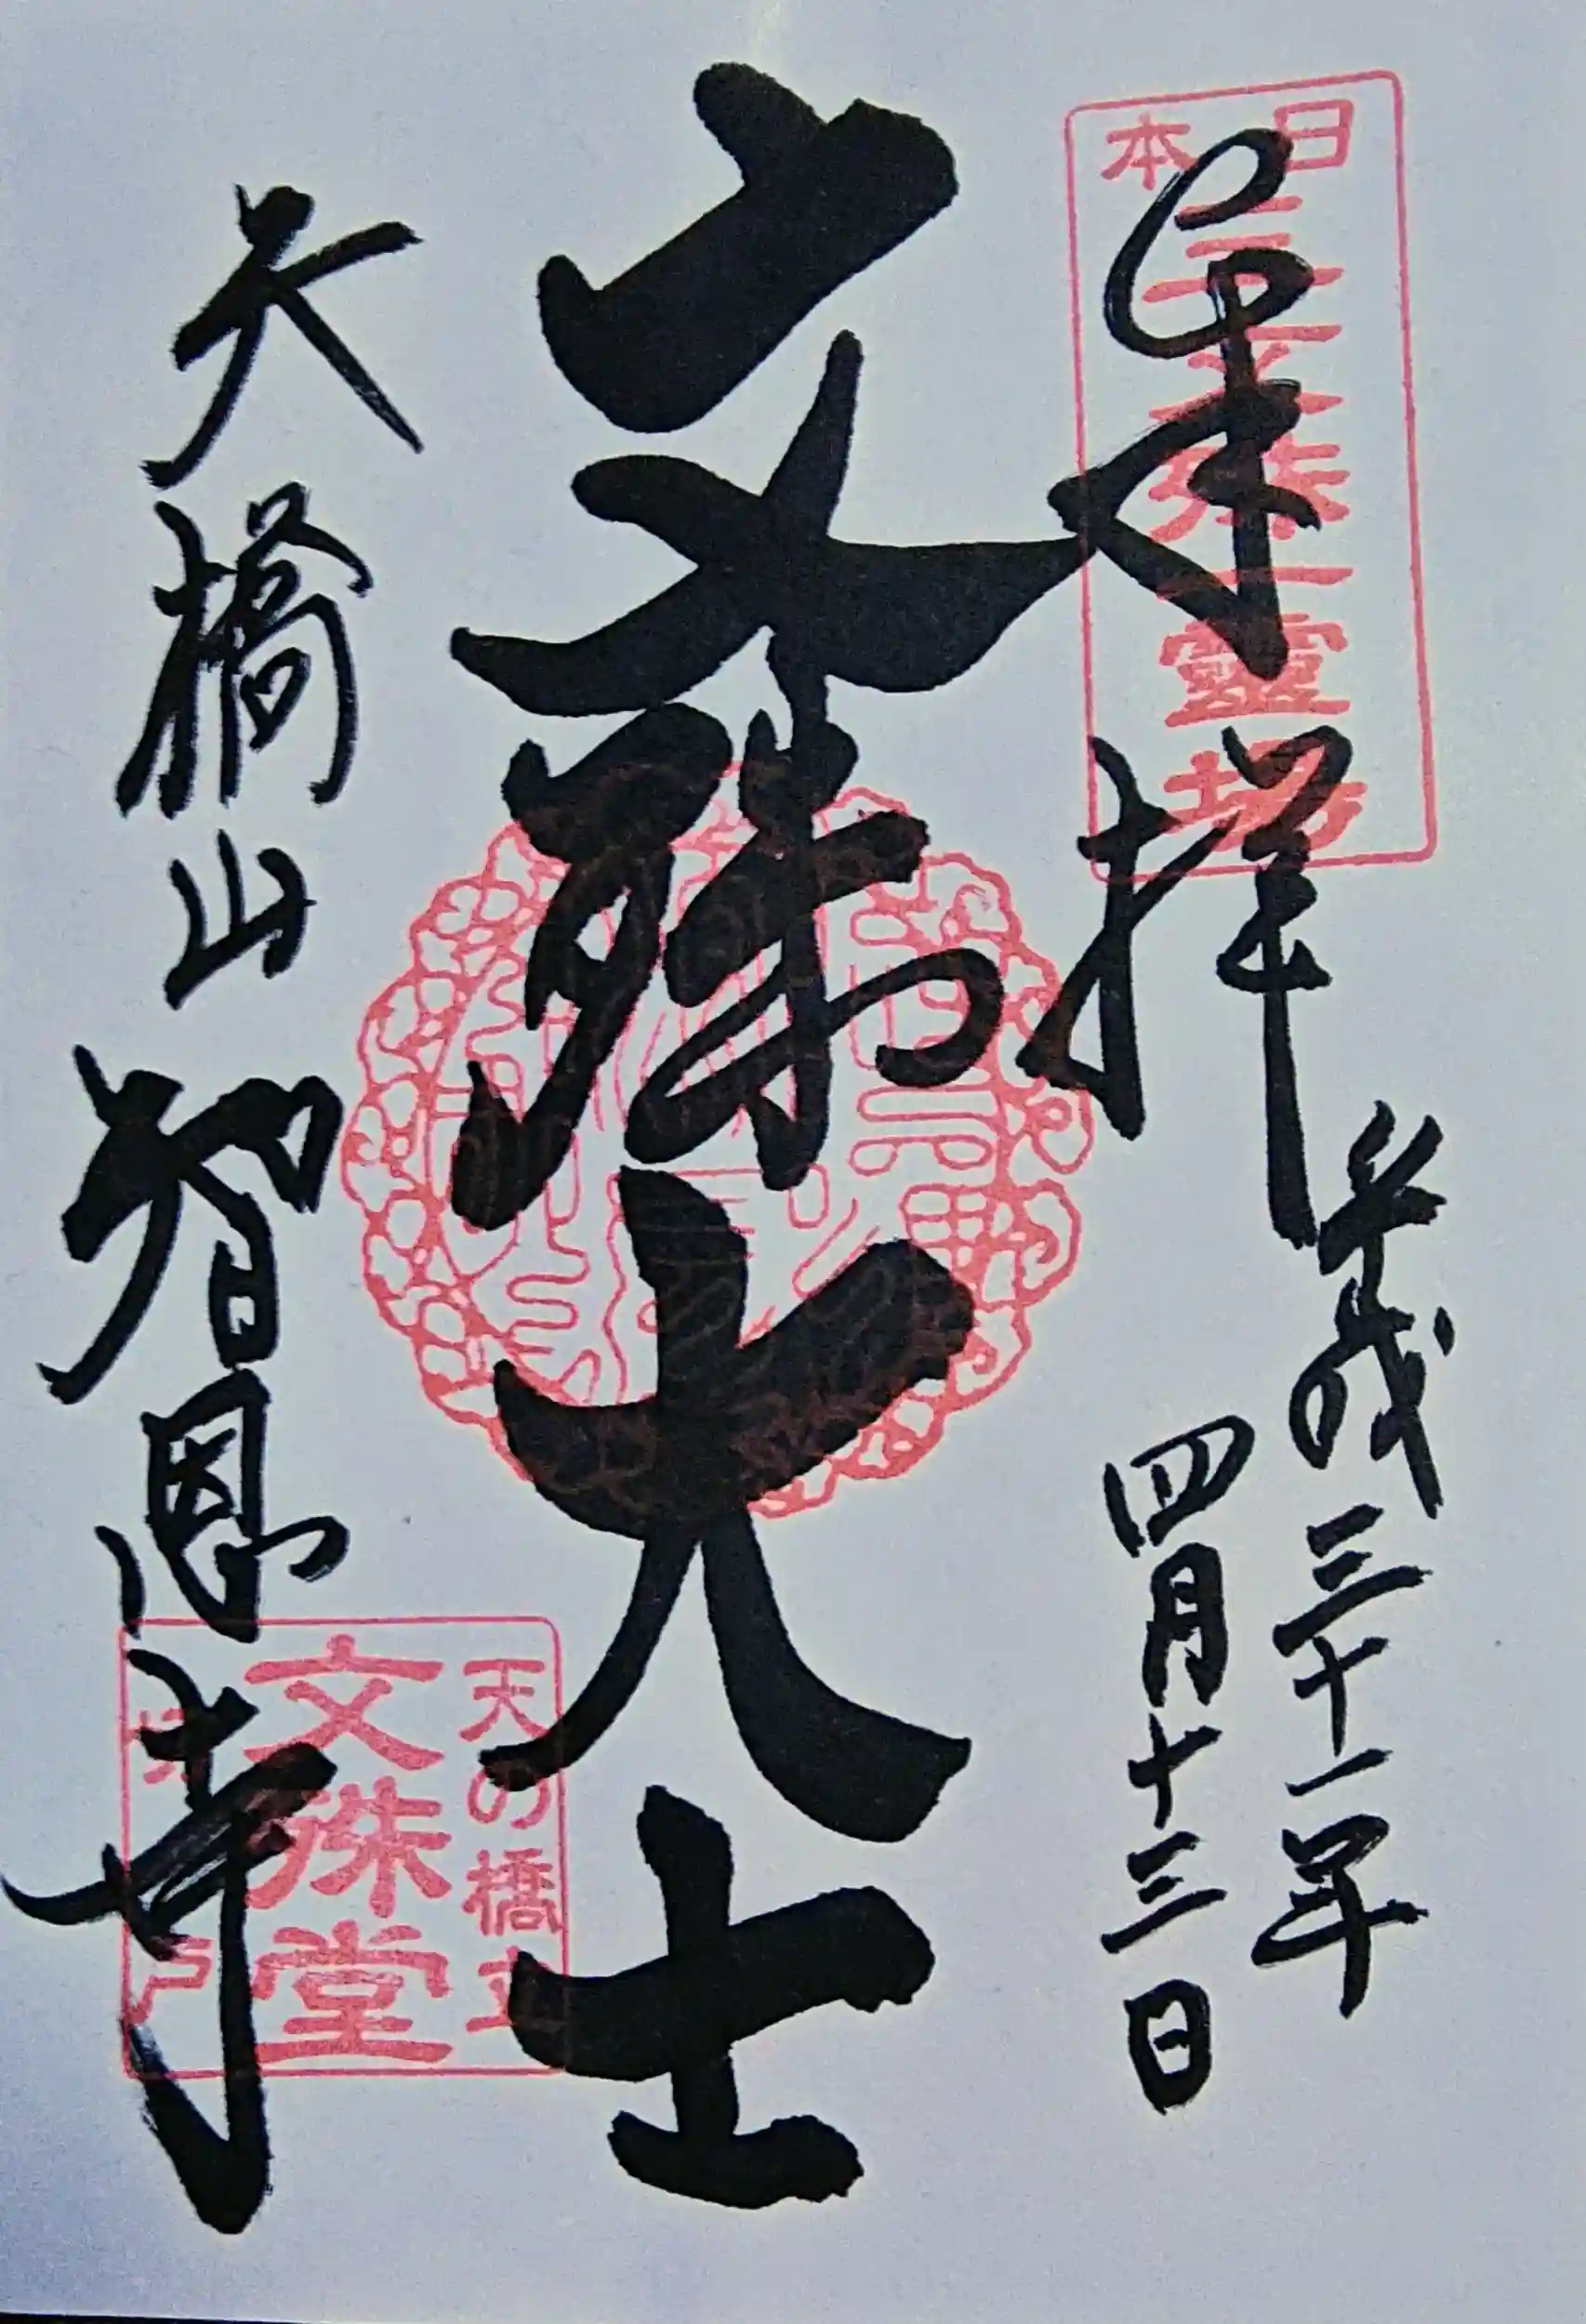 奉拝
日本三文殊一霊場
平成三十一年
四月十三日
文殊大士
天橋山智恩寺
天の橋立
文殊堂